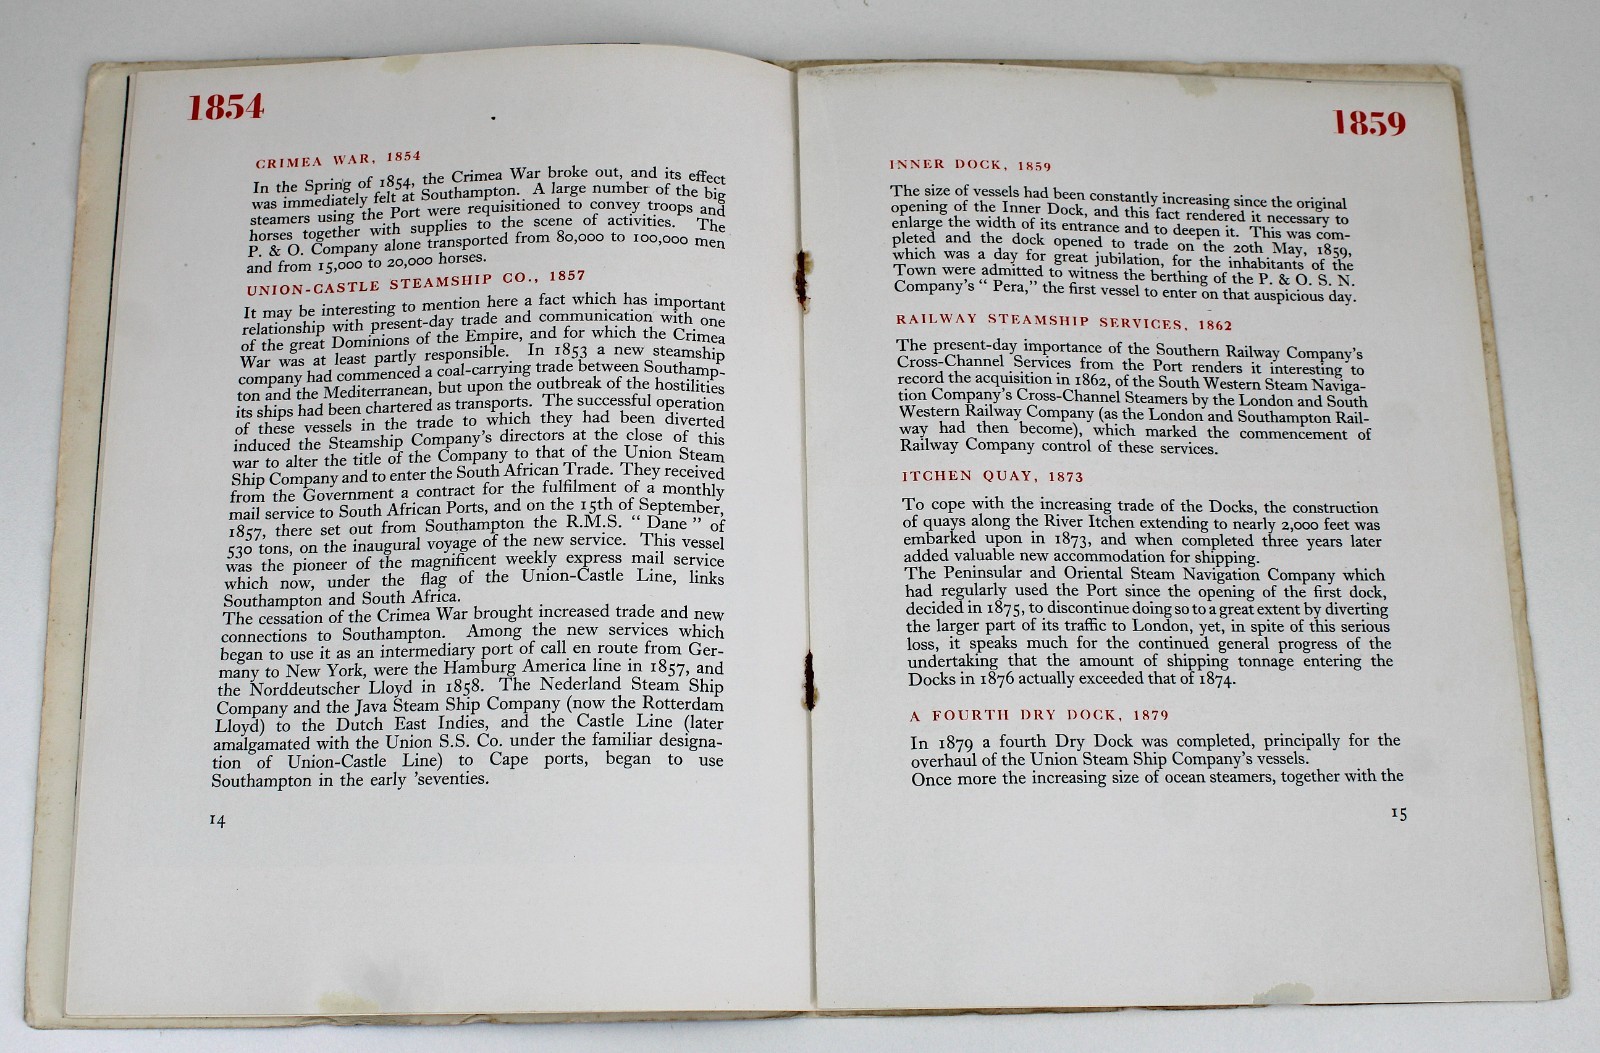 1854
CRIMEA WAR, 1854
In the Spring of 1854, the Crimea War broke out, and its effect
was immediately felt at Southampton. A large number of the big
steamers using the Port were requisitioned to convey troops and
horses together with supplies to the scene of activities. The
P. & O. Company alone transported from 80,000 to 100,000 men
and from 15,000 to 20,000 horses.
UNION-CASTLE STEAMSHIP CO., 1857
It may be interesting to mention here a fact which has important
relationship with present-day trade and communication with one
of the great Dominions of the Empire, and for which the Crimea
War was at least partly responsible. In 1853 a new steamship
company had commenced a coal-carrying trade between Southamp-
ton and the Mediterranean, but upon the outbreak of the hostilities
its ships had been chartered as transports. The successful operation
of these vessels in the trade to which they had been diverted
induced the Steamship Company's directors at the close of this
war to alter the title of the Company to that of the Union Steam
Ship Company and to enter the South African Trade. They received
from the Government a contract for the fulfilment of a monthly
mail service to South African Ports, and on the 15th of September,
1857, there set out from Southampton the R.M.S. "Dane" of
530 tons, on the inaugural voyage of the new service. This vessel
was the pioneer of the magnificent weekly express mail service
which now, under the flag of the Union-Castle Line, links
Southampton and South Africa.
The cessation of the Crimea War brought increased trade and new
connections to Southampton. Among the new services which
began to use it as an intermediary port of call en route from Ger-
many to New York, were the Hamburg America line in 1857, and
the Norddeutscher Lloyd in 1858. The Nederland Steam Ship
Company and the Java Steam Ship Company (now the Rotterdam
Lloyd) to the Dutch East Indies, and the Castle Line (later
amalgamated with the Union S.S. Co. under the familiar designa-
tion of Union-Castle Line) to Cape ports, began to use
Southampton in the early 'seventies.
14
1859
INNER DOCK, 1859
The size of vessels had been constantly increasing since the original
opening of the Inner Dock, and this fact rendered it necessary to
enlarge the width of its entrance and to deepen it. This was com-
pleted and the dock opened to trade on the 20th May, 1859,
which was a day for great jubilation, for the inhabitants of the
Town were admitted to witness the berthing of the P. & O. S. N.
Company's "Pera," the first vessel to enter on that auspicious day.
RAILWAY STEAMSHIP SERVICES, 1862
The present-day importance of the Southern Railway Company's
Cross-Channel Services from the Port renders it interesting to
record the acquisition in 1862, of the South Western Steam Naviga-
tion Company's Cross-Channel Steamers by the London and South
Western Railway Company (as the London and Southampton Rail-
way had then become), which marked the commencement of
Railway Company control of these services.
ITCHEN QUAY, 1873
To cope with the increasing trade of the Docks, the construction
of quays along the River Itchen extending to nearly 2,000 feet was
embarked upon in 1873, and when completed three years later
added valuable new accommodation for shipping.
The Peninsular and Oriental Steam Navigation Company which
had regularly used the Port since the opening of the first dock,
decided in 1875, to discontinue doing so to a great extent by diverting
the larger part of its traffic to London, yet, in spite of this serious
loss, it speaks much for the continued general progress of the
undertaking that the amount of shipping tonnage entering the
Docks in 1876 actually exceeded that of 1874.
A FOURTH DRY DOCK, 1879
In 1879 a fourth Dry Dock was completed, principally for the
overhaul of the Union Steam Ship Company's vessels.
Once more the increasing size of ocean steamers, together with the
15